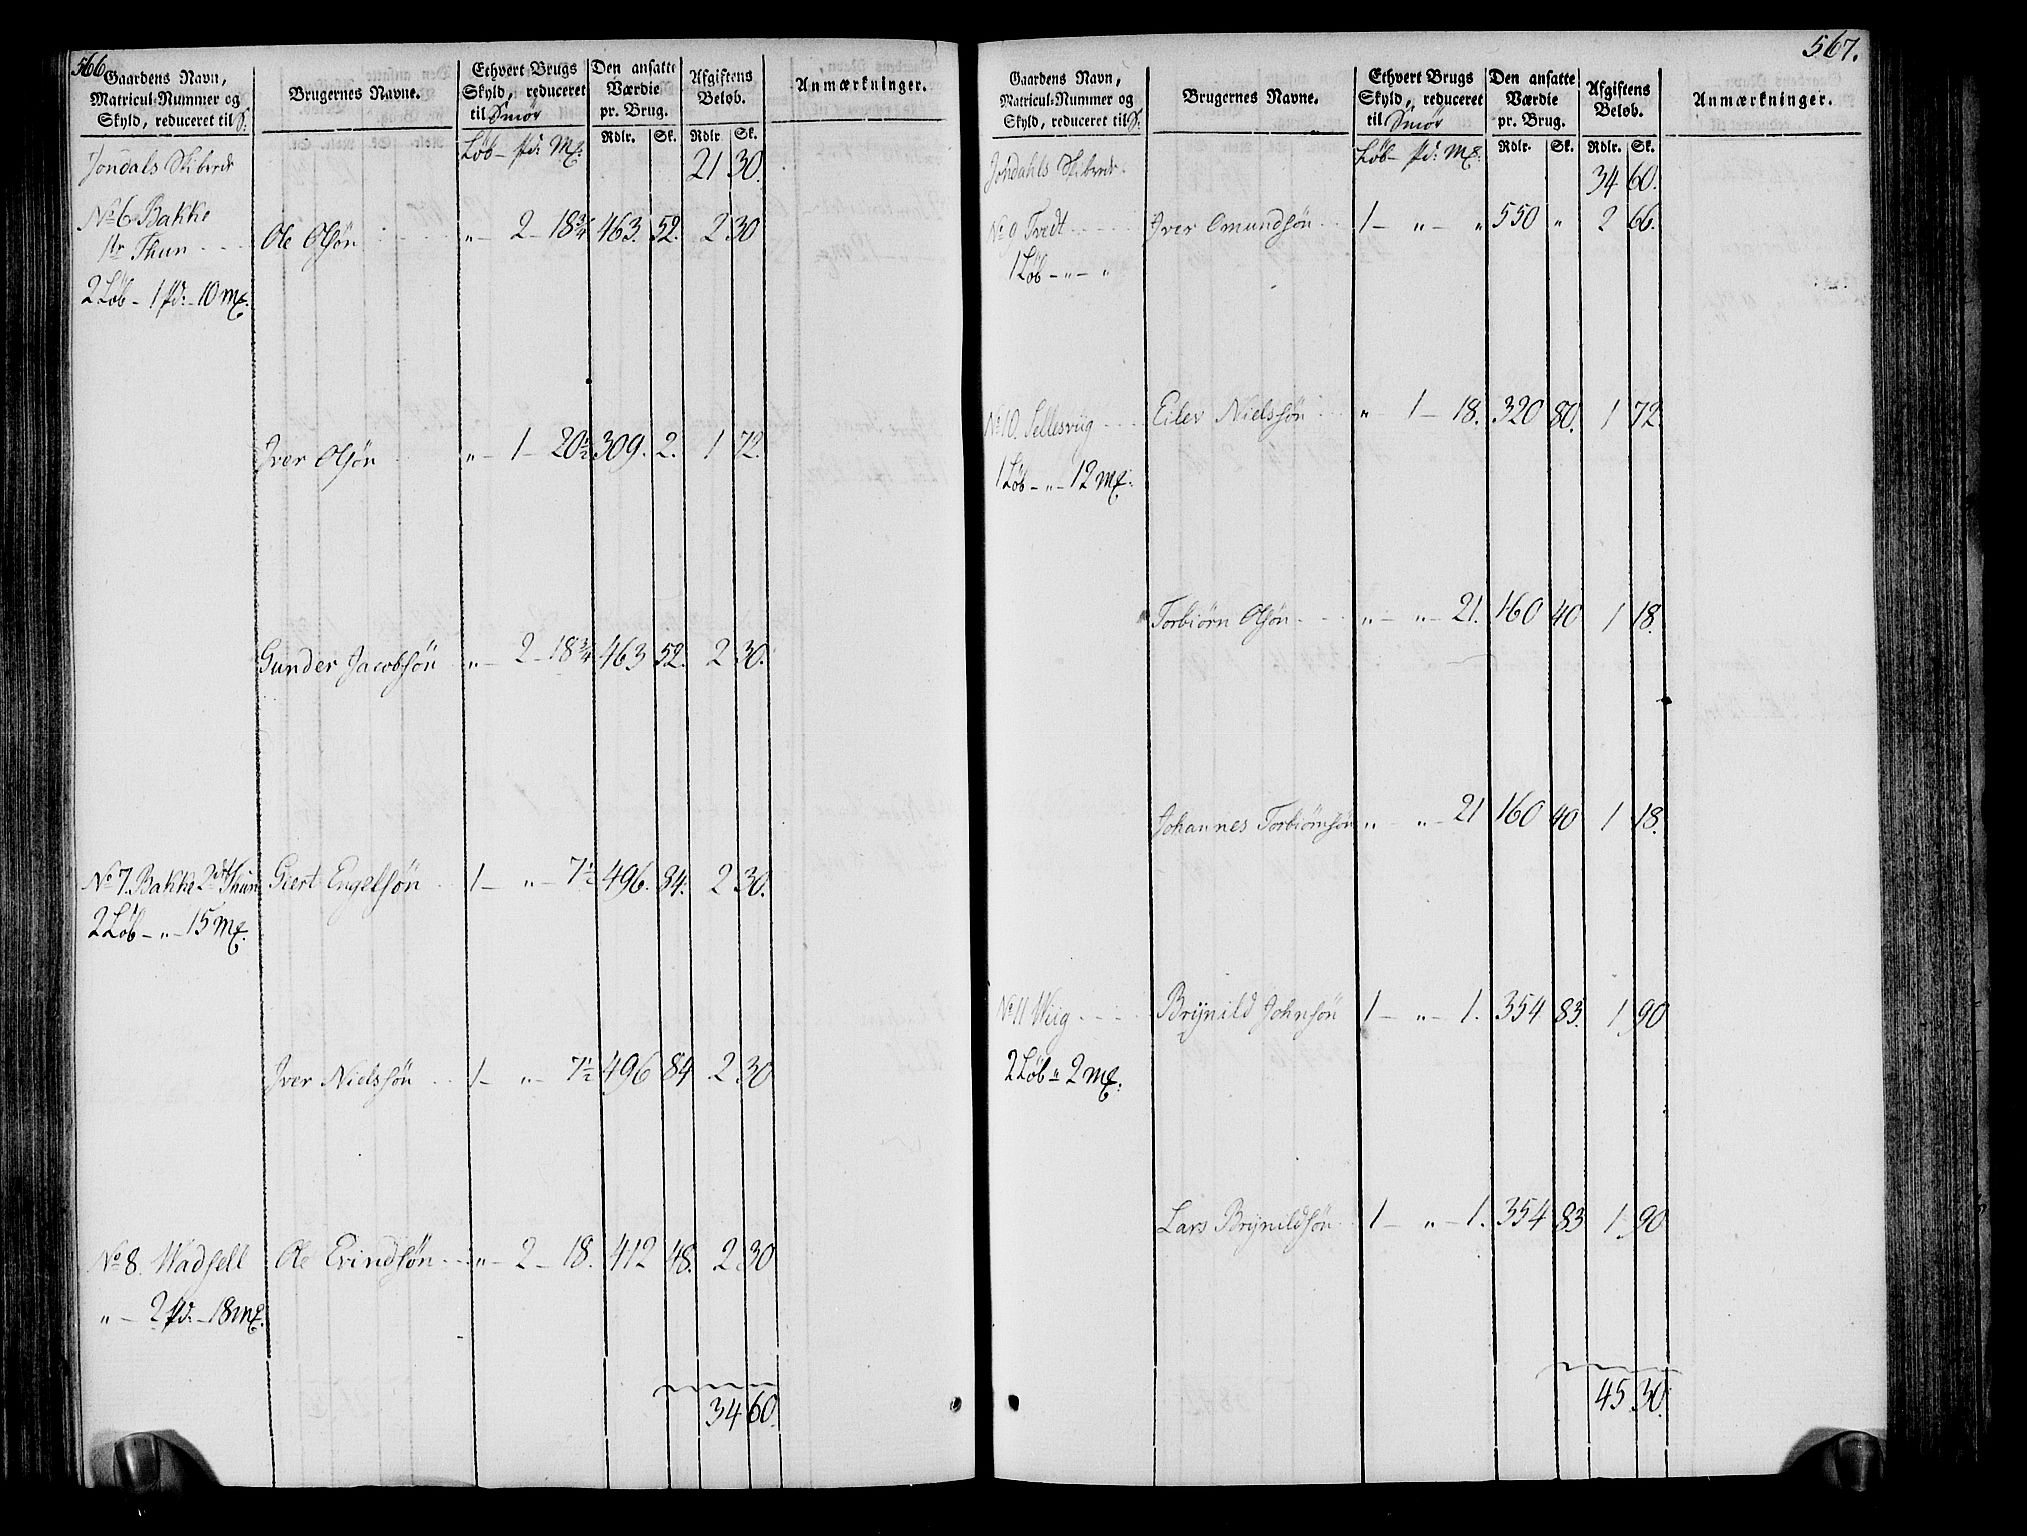 566
Gaardens Navn, Matricul-Nummer og Skyld, reduceret til S. | Brugernes Navne. | Ethvert Brugs Skyld, reduceret til Smör | Den ansatte Værdie pr. Brug. | Afgiftens Beløb. | Anmærkninger.
Løb - pd: mg: | Rdlr. | Sk. | Rdlr. | Sk.
Jondals Skibrede 21 30.
No 6 Bakke
1ste Thun Ole Olsøn „ - 2 - 18¾ 463. 52. 2 30
2 Løb - 1 pd: - 10 mg:
Iver Olsøn „ - 1 - 20½ 309. 2. 1 72.
Gunder Jacobsøn „ - 2 - 18¾ 463 52. 2 30.
No 7. Bakke 2det Thun Giert Engelsøn 1 - „ - 7½ 496. 84. 2 30.
2 Løb - „ - 15 mg.
Iver Nielssøn 1 - „ - 7½ 496 84 2 30
No 8. Wadsell Ole Erindsøn „ - 2 - 18. 412 48. 2 30
„ - 2 pd: - 18 mg.
34 60.
567.
Gaardens Navn, Matricul-Nummer og Skyld, reduceret til S. | Brugernes Navne. | Ethvert Brugs Skyld, reduceret til Smör | Den ansatte Værdie pr. Brug. | Afgiftens Beløb. | Anmærkninger.
Løb - pd: mg: | Rdlr. | Sk. | Rdlr. | Sk.
Jondahls Skibrede 34 60.
No 9 Tvedt Iver Omundsøn 1 - „ - „ 550 „ 2 66.
1 Løb - „ - „
No 10. Sellesviig Eiler Nielssøn „ 1 - 18. 320 80. 1 72.
1 Løb - „ - 12 mg:
Torbiörn Olsøn „ - „ - 21. 160 40 1 18.
Johannes Torbiörnsøn „ - „ - 21 160 40 1 18.
No 11 Wiig Brÿnild Johnsøn 1 - „ - 1. 354 83. 1 90
2 Løb „ 2 mg:
Lars Brÿnildsøn 1 - „ - 1. 354 83 1 90
45 30.